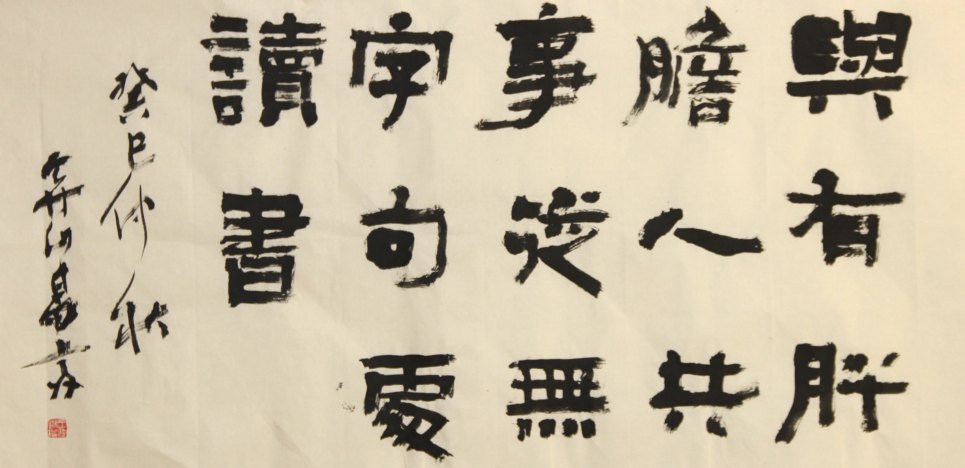 與有肝
膽人共
事從無
字句處
讀書
癸巳仲秋